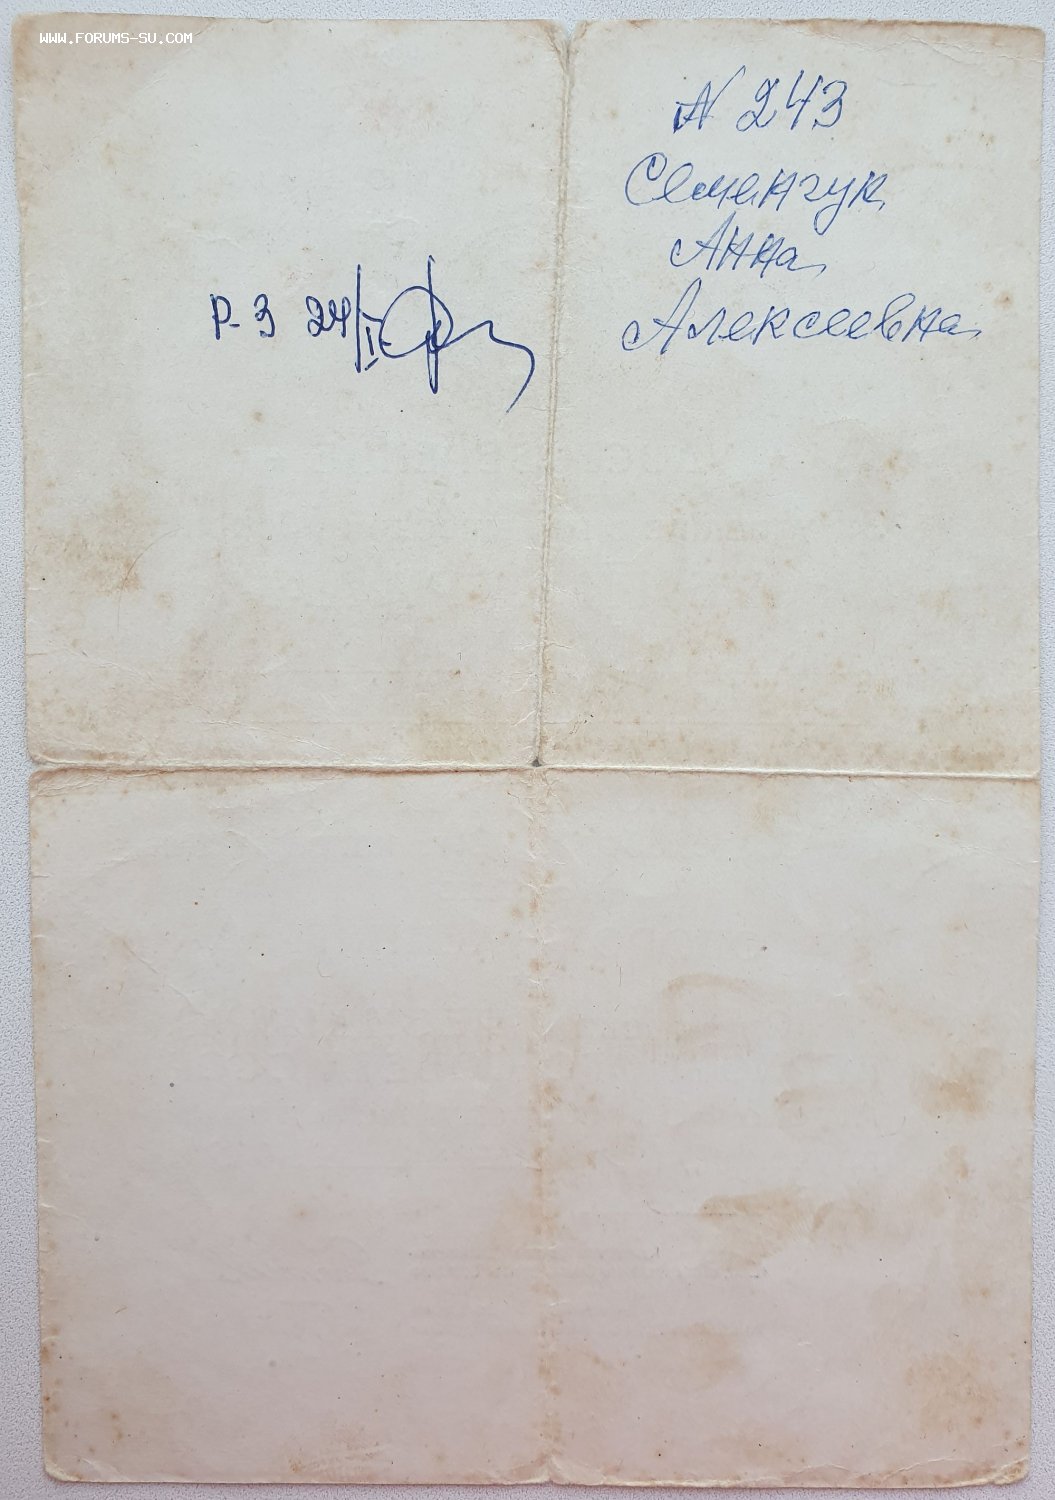 WWW.FORUMS-SU.COM
N 243
Семенчук
Анна
Алексеевна
Р-3 24/I